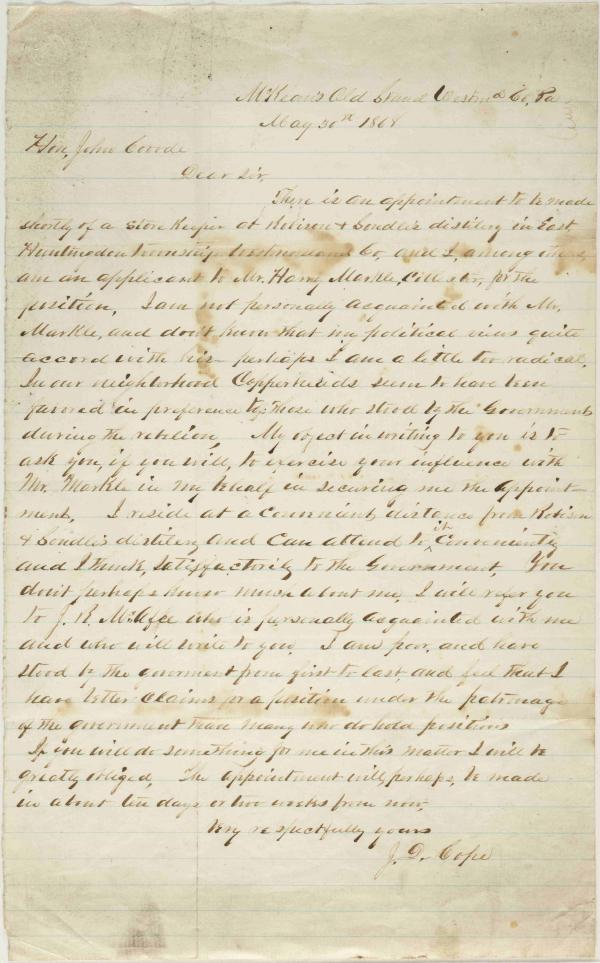 McKean's Old Stand Westmd Co, Pa
May 30th 1868
Hon, John Covode
Dear Sir,
There is an appointment to be made
shortly of a Store Keeper at Robison & Condle's distilery in East
Huntingdon township Westmoreland Co, and I, among others,
am an applicant to Mr. Harry Markle, Collector, for the
position, I am not personally acquainted with Mr.
Markle, and don't know that my political views quite
accord with his - perhaps I am a little too radical.
In our neighborhood Copperheads seem to have been
favored in preference to those who stood by the Government
during the rebelion, My object in writing to you is to
ask you, if you will, to exercise your influence with
Mr. Markle in my behalf in securing me the appoint-
ment, I reside at a convenient distance from Robison
& Condle's distilery and can attend to it conveniently
and I think, satisfactorily to the Government, You
don't perhaps know much about me, I will refer you
to J. R. McAfee who is personally acquainted with me
and who will write to you. I am poor, and have
stood by the goverment from first to last, and feel that I
have better claims for a position under the patronage
of the government than many who do hold positions
If you will do something for me in this matter I will be
greatly obliged, The appointment will, perhaps, be made
in about ten days or two weeks from now,
Very respectfully yours
J. D. Cope